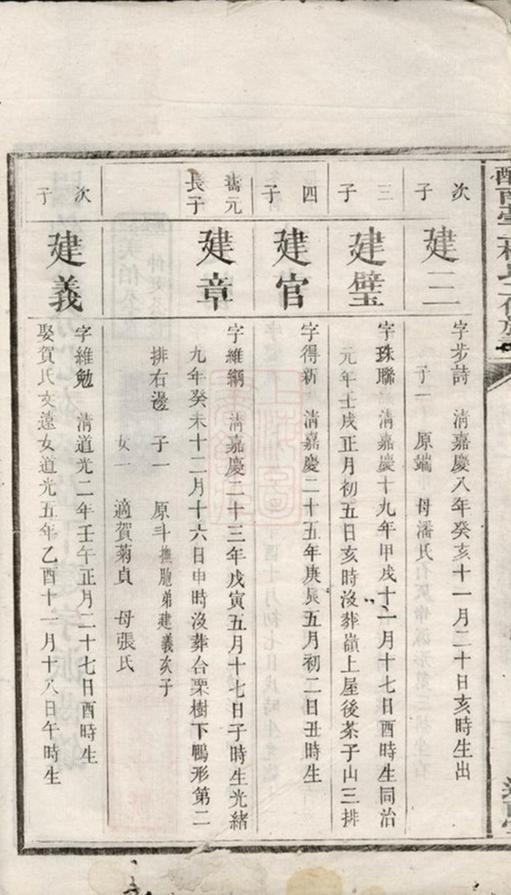 次子
建三
字步詩 清嘉慶八年癸亥十一月二十日亥時生出
子一 原端 母潘氏
三子
建璧
字珠聯 清嘉慶十九年甲戌十一月十七日酉時生同治
元年壬戌正月初五日亥時沒葬嶺上屋後茶子山三排
四子
建官
字得新 清嘉慶二十五年庚辰五月初二日丑時生
喬元長子
建章
字維綱 清嘉慶二十三年戊寅五月十七日子時生光緒
九年癸未十二月十六日申時沒葬台栗樹下鴨形第二
排右邊 子一 原斗撫胞弟建義次子
女一 適賀菊貞 母張氏
次子
建義
字維勉 清道光二年壬午正月二十七日酉時生
娶賀氏文遠女道光五年乙酉十一月十八日午時生